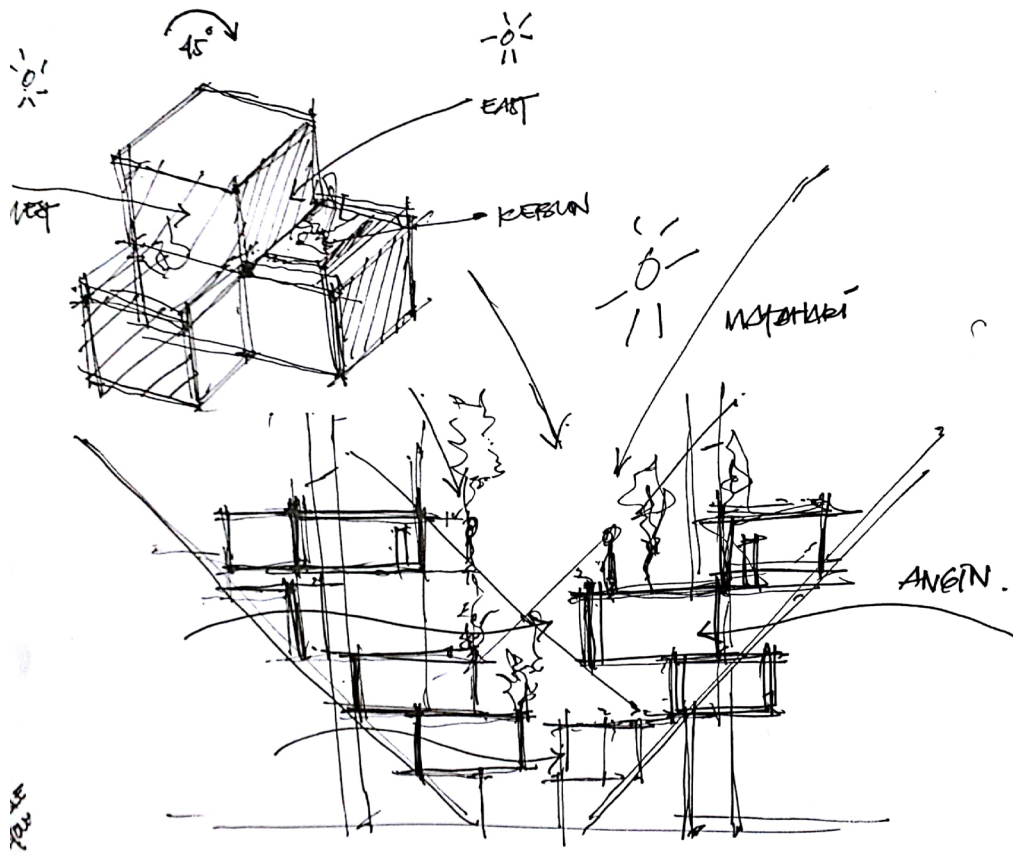 45°
EAST
WEST
KEBUN
MATAHARI
ANGIN.